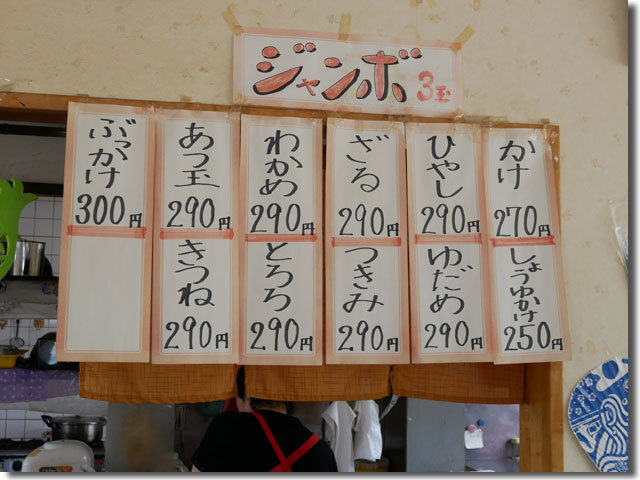 ジャンボ 3玉
かけ
270円
しょうゆかけ
250円
ひやし
290円
ゆだめ
290円
ざる
290円
つきみ
290円
わかめ
290円
とろろ
290円
あつ玉
290円
きつね
290円
ぶっかけ
300円